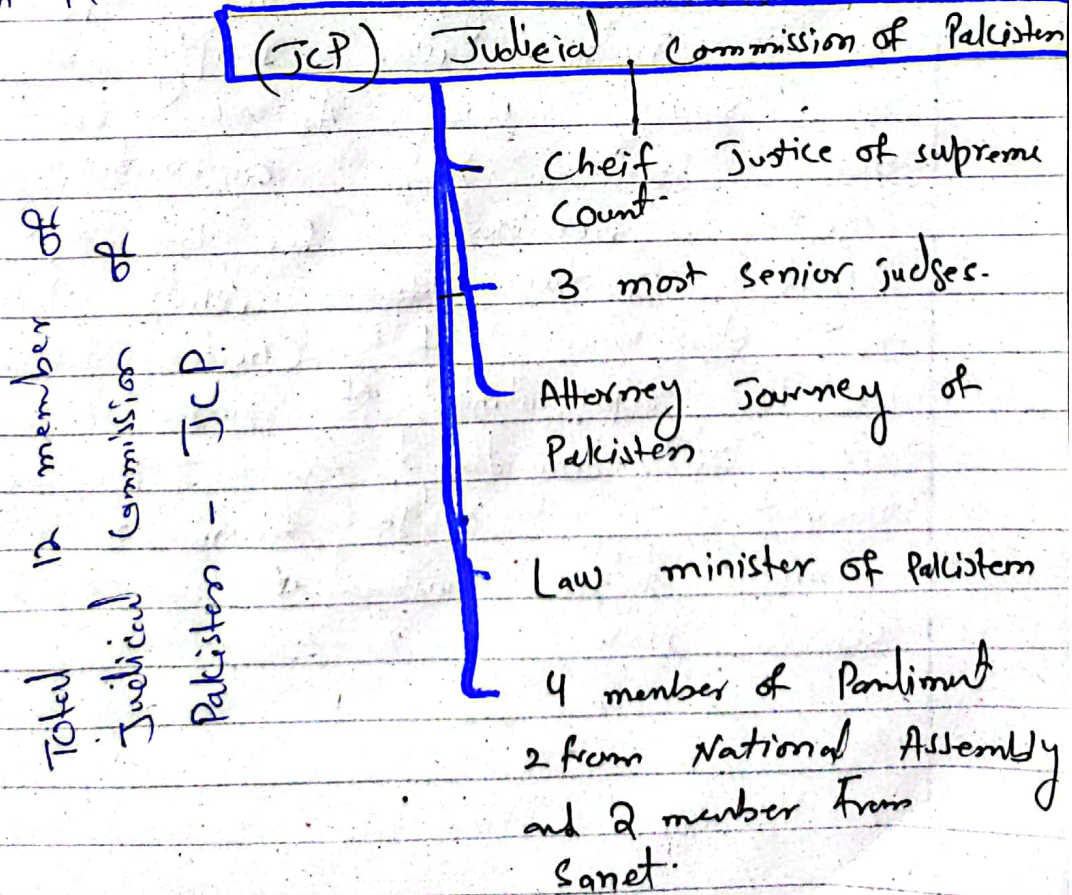 (JCP) Judicial Commission of Pakisten
Cheif Justice of supreme
Count.
3 most senior judges.
Attorney Journey of
Pakisten
Law minister of Pakistem
4 member of Parliment
2 from National Assembly
and 2 member From
Sanet.
Total 12 member of
Judical Commission of
Pakisten - JCP.